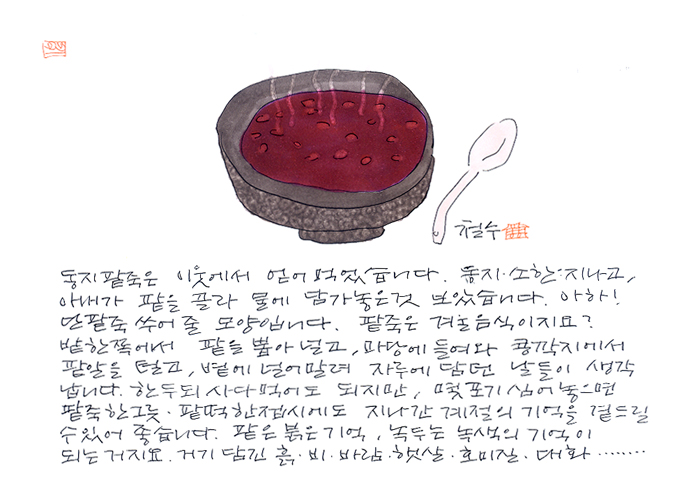 철수
동지팥죽은 이웃에서 얻어 먹었습니다. 동지·소한·지나고,
아내가 팥을 골라 물에 담가놓은것 보았습니다. 아하!
단팥죽 쑤어 줄 모양입니다. 팥죽은 겨울음식이지요?
밭한쪽에서 팥을 뽑아 널고, 마당에 들여와 콩깍지에서
팥알을 털고, 볕에 널어말려 자루에 담던 날들이 생각
납니다. 한두되 사다먹어도 되지만, 몇포기 심어 놓으면
팥죽한그릇·팥떡한접시에도 지나간 계절의 기억을 곁드릴
수있어 좋습니다. 팥은 붉은기억, 녹두는 녹색의 기억이
되는거지요. 거기 담긴 흙·비·바람·햇살·호미질·대화········